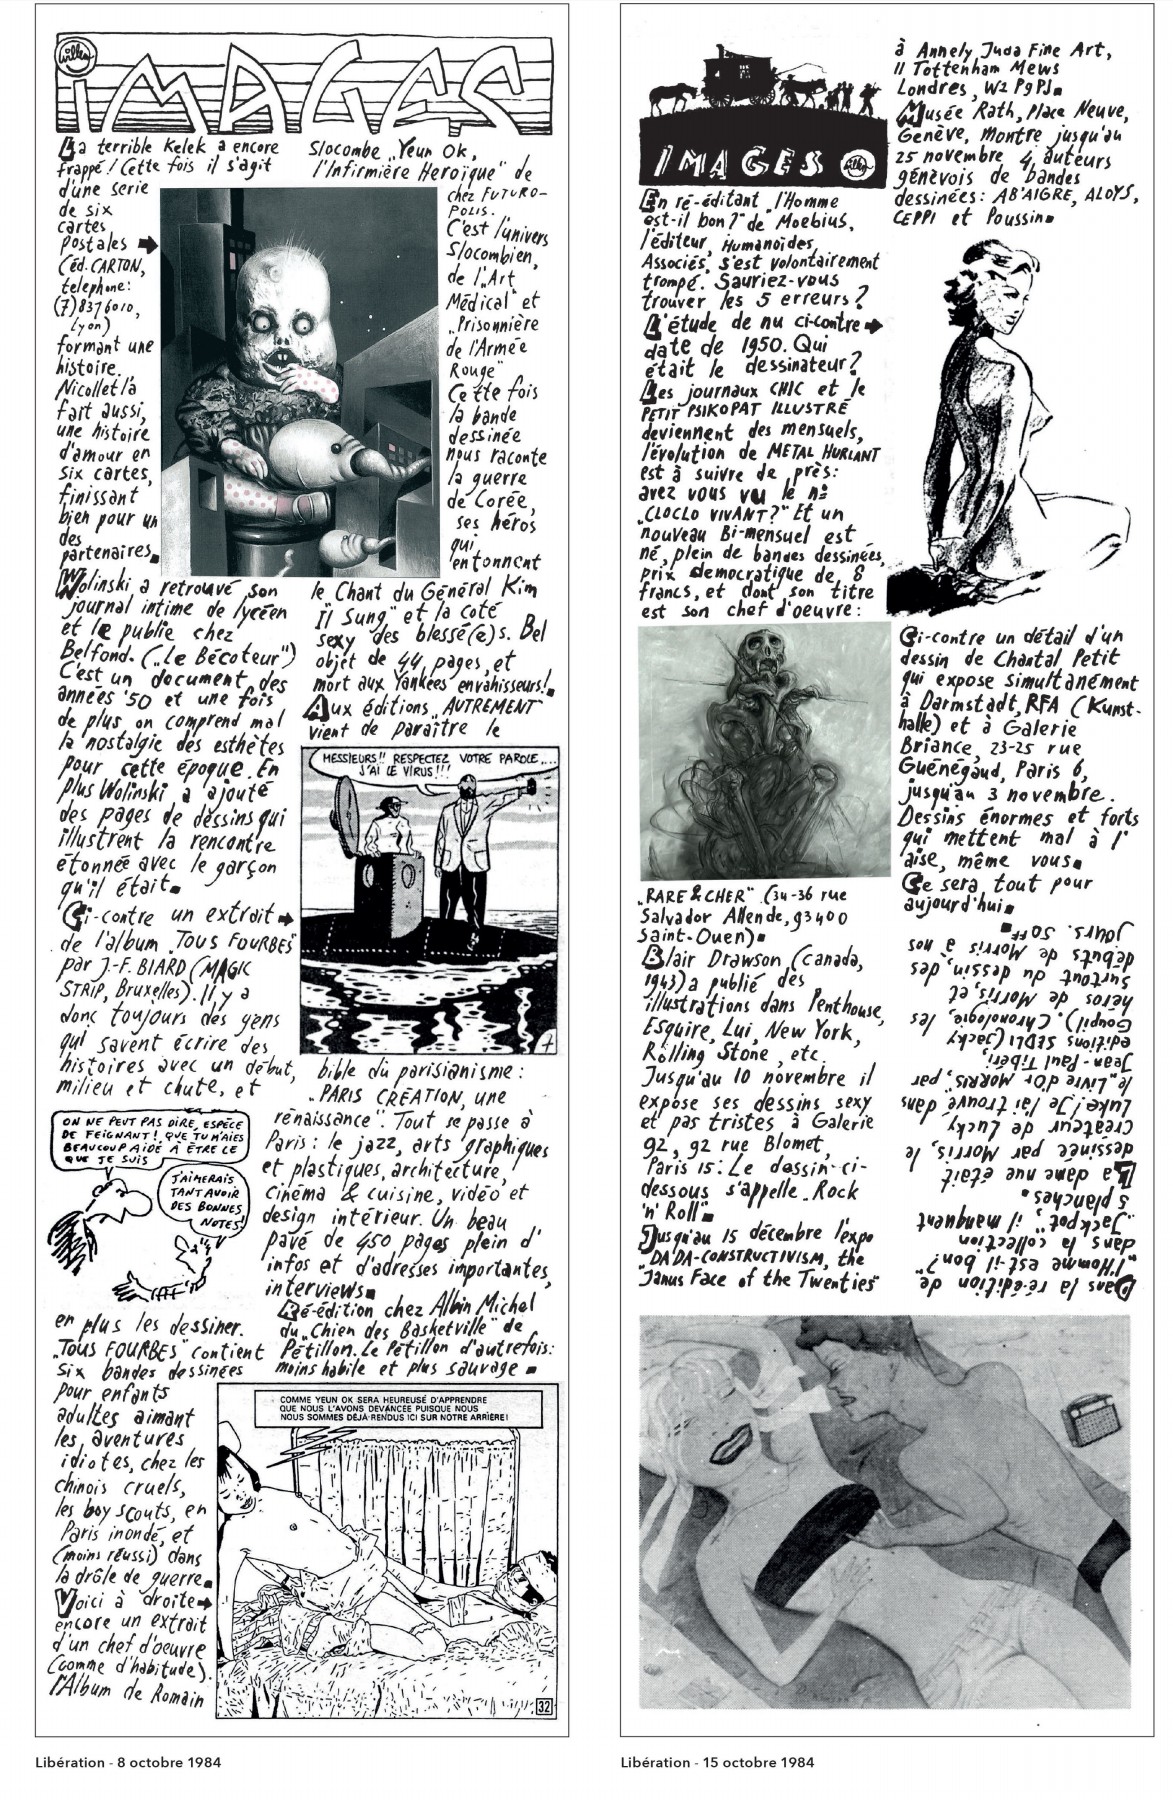 Willem
IMAGES
La terrible Kelek a encore
frappé! Cette fois il s'agit
d'une serie
de six
cartes
postales
(éd. CARTON,
telephone:
(7)8376010,
Lyon)
formant une
histoire.
Nicollet l'a
fait aussi,
une histoire
d'amour en
six cartes,
finissant
bien pour un
des
partenaires.
Wolinski a retrouvé son
journal intime de lycéen
et le publie chez
Belfond. („Le Bécoteur")
C'est un document des
années '50 et une fois
de plus on comprend mal
la nostalgie des esthètes
pour cette époque. En
plus Wolinski a ajouté
des pages de dessins qui
illustrent la rencontre
étonnée avec le garçon
qu'il était.
Ci-contre un extrait
de l'album „TOUS FOURBES"
par J.-F. BIARD (MAGIC
STRIP, Bruxelles). Il y a
donc toujours des gens
qui savent écrire des
histoires avec un début,
milieu et chute, et
ON NE PEUT PAS DIRE, ESPÈCE
DE FEIGNANT! QUE TU N'AIES
BEAUCOUP AIDÉ À ÊTRE CE
QUE JE SUIS
J'AIMERAIS
TANT AVOIR
DES BONNES
NOTES!
en plus les dessiner.
„TOUS FOURBES" contient
six bandes dessinées
pour enfants
adultes aimant
les aventures
idiotes, chez les
chinois cruels,
les boy scouts, en
Paris inondé, et
(moins réussi) dans
la drôle de guerre.
Voici à droite
encore un extrait
d'un chef d'oeuvre
(comme d'habitude).
l'Album de Romain
Slocombe „Yeun Ok,
l'Infirmière Heroïque" de
chez FUTURO-
POLIS.
C'est l'univers
Slocombien,
de l'„Art
Médical" et
„Prisonnière
de l'Armée
Rouge"
Cette fois
la bande
dessinée
nous raconte
la guerre
de Corée,
ses héros
qui
entonnent
le Chant du Général Kim
Il Sung" et la coté
sexy des blessé(e)s. Bel
objet de 44 pages, et
mort aux Yankees envahisseurs!
Aux éditions „AUTREMENT"
vient de paraître le
MESSIEURS!! RESPECTEZ VOTRE PAROLE....
J'AI LE VIRUS!!!
bible du parisianisme:
„PARIS CRÉATION, une
rénaissance". Tout se passe à
Paris: le jazz, arts graphiques
et plastiques, architecture,
cinéma & cuisine, vidéo et
design intérieur. Un beau
pavé de 450 pages plein d'
infos et d'adresses importantes,
interviews.
Ré-édition chez Albin Michel
du „Chien des Basketville" de
Pétillon. Le Pétillon d'autrefois:
moins habile et plus sauvage.
COMME YEUN OK SERA HEUREUSE D'APPRENDRE
QUE NOUS L'AVONS DEVANCÉE PUISQUE NOUS
NOUS SOMMES DÉJÀ RENDUS ICI SUR NOTRE ARRIÈRE!
32
Libération - 8 octobre 1984
IMAGES
Willem
En ré-éditant „l'Homme
est-il bon?" de Moebius,
l'éditeur, Humanoïdes
Associés, s'est volontairement
trompé. Sauriez-vous
trouver les 5 erreurs?
L'étude de nu ci-contre
date de 1950. Qui
était le dessinateur?
Les journaux CHIC et le
PETIT PSIKOPAT ILLUSTRÉ
deviennent des mensuels,
l'évolution de METAL HURLANT
est à suivre de près:
avez vous vu le no
„CLOCLO VIVANT?" Et un
nouveau Bi-mensuel est
né, plein de bandes dessinées,
prix democratique de 8
francs, et dont son titre
est son chef d'oeuvre:
„RARE & CHER" (34-36 rue
Salvador Allende, 93400
Saint-Ouen).
Blair Drawson (Canada,
1943) a publié des
illustrations dans Penthouse,
Esquire, Lui, New York,
Rolling Stone, etc.
Jusqu'au 10 novembre il
expose ses dessins sexy
et pas tristes à Galerie
92, 92 rue Blomet,
Paris 15: Le dessin ci-
dessous s'appelle „Rock
'n' Roll".
Jusqu'au 15 décembre l'expo
„DADA-CONSTRUCTIVISM, the
„Janus Face of the Twenties"
à Annely Juda Fine Art,
11 Tottenham Mews
Londres, W2 P9PJ.
Musée Rath, Place Neuve,
Genève, montre jusqu'au
25 novembre 4 auteurs
génèvois de bandes
dessinées: AB'AIGRE, ALOYS,
CEPPI et Poussin.
Ci-contre un détail d'un
dessin de Chantal Petit
qui expose simultanément
à Darmstadt, RFA (Kunst-
halle) et à Galerie
Briance, 23-25 rue
Guénégaud, Paris 6,
jusqu'au 3 novembre.
Dessins énormes et forts
qui mettent mal à l'
aise, même vous.
Ce sera tout pour
aujourd'hui.
Dans la ré-édition de
„l'Homme est-il bon?"
dans la collection
„Jackpot", il manquent
5 planches.
La dame nue était
dessinée par Morris, le
créateur de Lucky
Luke! Je l'ai trouvé dans
le „Livre d'Or MORRIS", par
Jean-Paul Tibéri,
editions SEDLI (Jacky
Goupil). Chronologie, les
héros de Morris, et
surtout du dessin, des
débuts de Morris à nos
jours. 50FF.
Libération - 15 octobre 1984